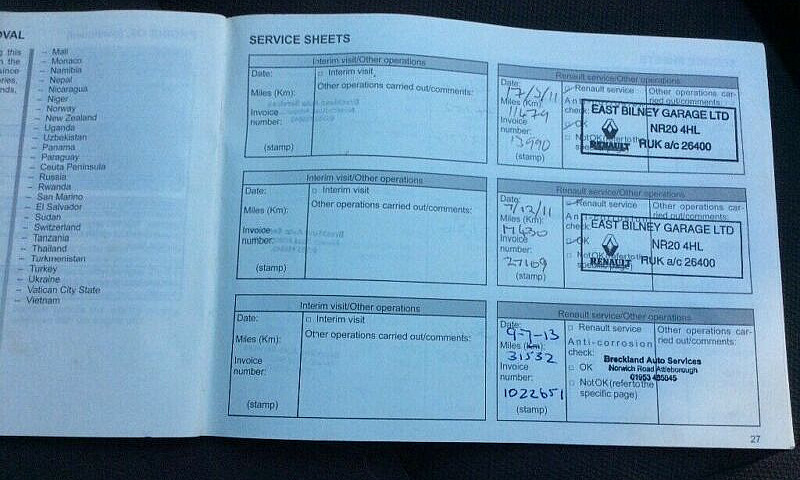 OVAL
ng this
n the
ince
ries,
nds,
– Mali
– Monaco
– Namibia
– Nepal
– Nicaragua
– Niger
– Norway
– New Zealand
– Uganda
– Uzbekistan
– Panama
– Paraguay
– Ceuta Peninsula
– Russia
– Rwanda
– San Marino
– El Salvador
– Sudan
– Switzerland
– Tanzania
– Thailand
– Turkmenistan
– Turkey
– Ukraine
– Vatican City State
– Vietnam
SERVICE SHEETS
Interim visit/Other operations
Date:
Interim visit
Miles (Km):
Other operations carried out/comments:
Invoice
number:
(stamp)
Renault service/Other operations
Date:
17/2/11
Miles (Km):
11479
Invoice
number:
13990
(stamp)
Renault service
Anti
check:
OK
Not OK
Other operations car-
ried out/comments:
EAST BILNEY GARAGE LTD
NR20 4HL
RENAULT RUK a/c 26400
Interim visit/Other operations
Date:
Interim visit
Miles (Km):
Other operations carried out/comments:
Invoice
number:
(stamp)
Renault service/Other operations
Date:
7/12/11
Miles (Km):
Invoice
number:
27109
(stamp)
Renault service
OK
Not OK (refer to the
specific page)
Other operations car-
ried out/comments:
EAST BILNEY GARAGE LTD
NR20 4HL
RENAULT RUK a/c 26400
Interim visit/Other operations
Date:
Interim visit
Miles (Km):
Other operations carried out/comments:
Invoice
number:
(stamp)
Renault service/Other operations
Date:
9-7-13
Miles (Km):
31532
Invoice
number:
1022651
(stamp)
Renault service
Anti-corrosion
check:
OK
Not OK (refer to the
specific page)
Other operations car-
ried out/comments:
Breckland Auto Services
Norwich Road Attleborough
27